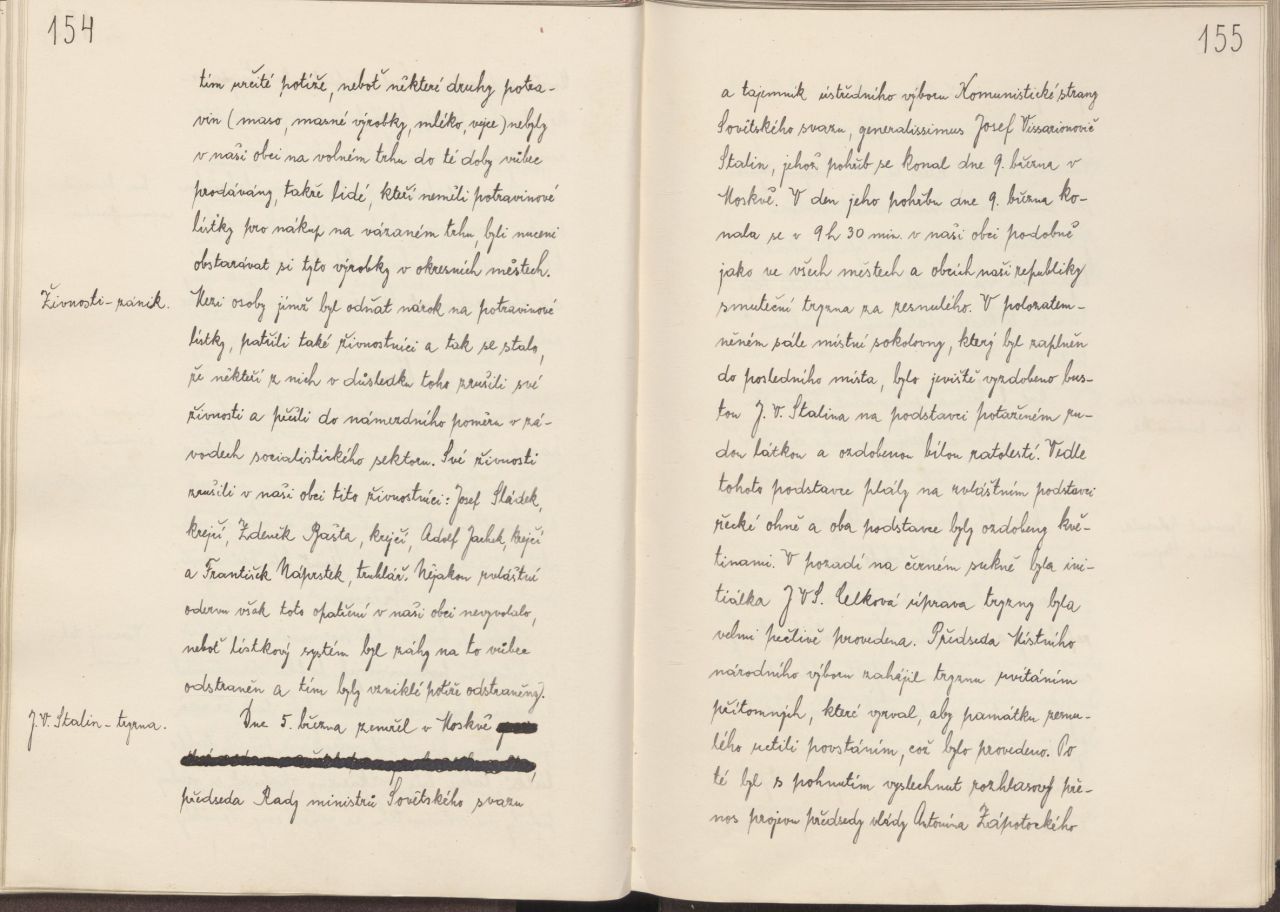 154
tím určité potíže, neboť některé druhy potra-
vin (maso, masné výrobky, mléko, vejce) nebyly
v naší obci na volném trhu do té doby vůbec
prodávány, takže lidé, kteří neměli potravinové
lístky pro nákup na vázaném trhu, byli nuceni
obstarávat si tyto výrobky v okresních městech.
Živnosti-zánik.
Mezi osoby jímž byl odňat nárok na potravinové
lístky, patřili také živnostníci a tak se stalo,
že někteří z nich v důsledku toho zrušili své
živnosti a přešli do námezdního poměru v zá-
vodech socialistického sektoru. Své živnosti
zrušili v naší obci tito živnostníci: Josef Sládek,
krejčí, Zdeněk Bašta, krejčí, Adolf Jachek, krejčí
a František Náprstek, truhlář. Nějakou zvláštní
odezvu však toto opatření v naší obci nevyvolalo,
neboť lístkový systém byl záhy na to vůbec
odstraněn a tím byly vzniklé potíže odstraněny).
J. V. Stalin-tryzna.
Dne 5. března zemřel v Moskvě
předseda Rady ministrů Sovětského svazu
155
a tajemník ústředního výboru Komunistické strany
Sovětského svazu, generalissimus Josef Vissarionovič
Stalin, jehož pohřeb se konal dne 9. března v
Moskvě. V den jeho pohřbu dne 9. března ko-
nala se v 9 h 30 min. v naší obci podobně
jako ve všech městech a obcích naší republiky
smuteční tryzna za zesnulého. V polozatem-
něném sále místní sokolovny, který byl zaplněn
do posledního místa, bylo jeviště vyzdobeno bus-
tou J. V. Stalina na podstavci potaženém ru-
dou látkou a ozdobenou bílou ratolestí. Vedle
tohoto podstavce plály na zvláštním podstavci
řecké ohně a oba podstavce byly ozdobeny kvě-
tinami. V pozadí na černém sukně byla ini-
tiálka JVS. Celková úprava tryzny byla
velmi pečlivě provedena. Předseda Místního
národního výboru zahájil tryznu uvítáním
přítomných, které vyzval, aby památku zesnu-
lého uctili povstáním, což bylo provedeno. Po
té byl s pohnutím vyslechnut rozhlasový pře-
nos projevu předsedy vlády Antonína Zápotockého